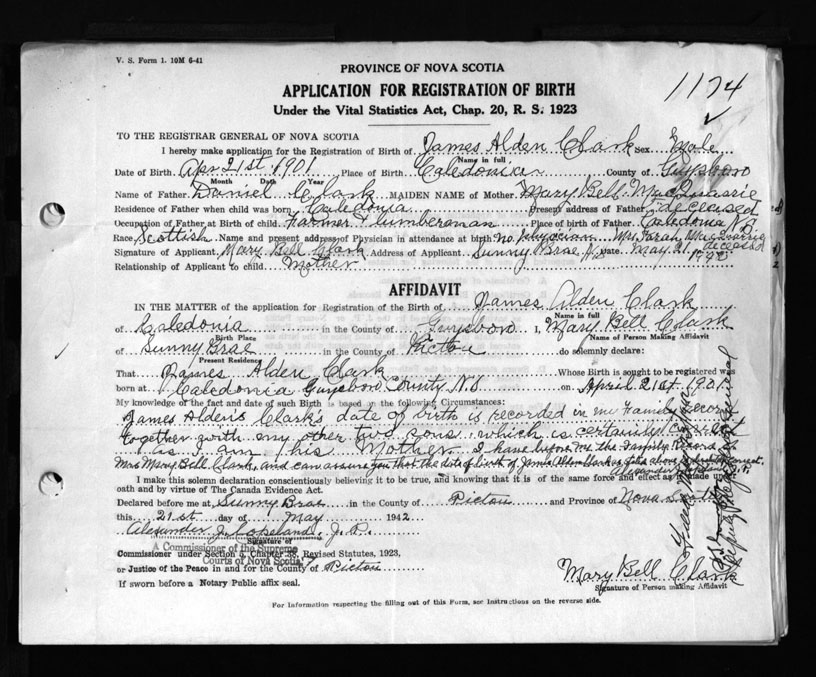 V. S. Form 1. 10M 6-41
PROVINCE OF NOVA SCOTIA
1174
APPLICATION FOR REGISTRATION OF BIRTH
Under the Vital Statistics Act, Chap. 20, R. S. 1923
TO THE REGISTRAR GENERAL OF NOVA SCOTIA
I hereby make application for the Registration of Birth of James Alden Clark Sex Male
Name in full
Date of Birth Apr 21st 1901 Place of Birth Caledonia County of Guysboro
Month Date Year
Name of Father Daniel Clark MAIDEN NAME of Mother Mary Bell MacQuarrie
Residence of Father when child was born Caledonia Present address of Father deceased
Occupation of Father at Birth of child Farmer & Lumberman Place of birth of Father Caledonia N.S.
Race Scottish Name and present address of Physician in attendance at birth no physician Mrs Sarah MacQuarrie deceased
Signature of Applicant Mary Bell Clark Address of Applicant Sunny Brae N.S. Date May 21 1942
Relationship of Applicant to child Mother
AFFIDAVIT
IN THE MATTER of the application for Registration of the Birth of James Alden Clark
Name in full
of Caledonia in the County of Guysboro I, Mary Bell Clark
Birth Place Name of Person Making Affidavit
of Sunny Brae in the County of Pictou do solemnly declare:
Present Residence
That James Alden Clark Whose Birth is sought to be registered was
born at Caledonia Guysboro County N.S on April 21st 1901
My knowledge of the fact and date of such Birth is based on the following Circumstances:
James Alden's Clark's date of birth is recorded in my Family record
together with my other two sons, which is certainly correct
as I am his Mother. I have before me the Family Record of
Mrs Mary Bell Clark, and can assure you that the date of birth of James Alden Clark as given above is correct.
I make this solemn declaration conscientiously believing it to be true, and knowing that it is of the same force and effect as if made under
oath and by virtue of The Canada Evidence Act.
Declared before me at Sunny Brae in the County of Pictou and Province of Nova Scotia
this 21st day of May 1942
Alexander J. Copeland, J. P.
Signature of
A Commissioner of the Supreme
Courts of Nova Scotia
Commissioner under Section Chapter 38, Revised Statutes, 1923,
or Justice of the Peace in and for the County of Pictou
If sworn before a Notary Public affix seal.
Mary Bell Clark
Signature of Person making Affidavit
For Information respecting the filling out of this Form, see Instructions on the reverse side.